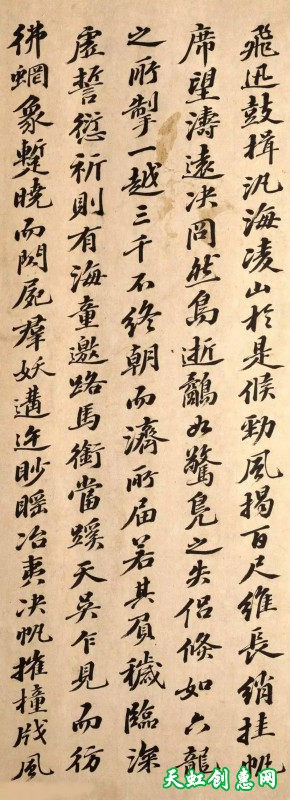 飛迅鼓楫汎海凌山於是候勁風揭百尺維長綃挂帆
席望濤遠决冏然鳥逝鷸如驚鳧之失侶倏如六龍
之所掣一越三千不終朝而濟所届若其負穢臨深
虛誓愆祈則有海童邀路馬銜當蹊天吳乍見而彷
彿蝄象暫曉而閃屍羣妖遘迕眇䁘冶夷决帆摧橦戕風
天虹创惠网